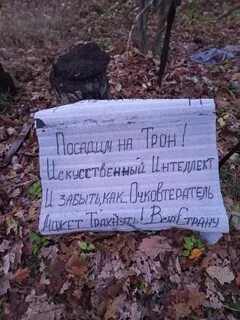 Посадим на Трон!
Искусственный Интеллект
И забыть, как Очковтератель
Может Трахнуть! Всю Страну